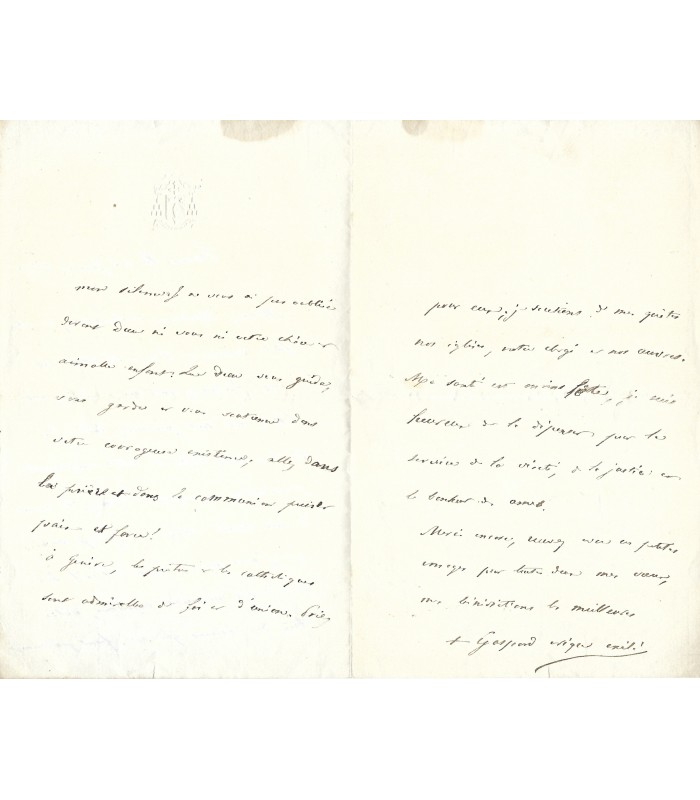 mon silence je ne vous ai pas oubliée
devant Dieu ni vous ni votre chère et
aimable enfant. Que Dieu vous guide,
vous garde et vous soutienne dans
votre courageuse existence, allez dans
la prière et dans la communion puiser
paix et force!
à Genève, les prêtres et les catholiques
sont admirables de foi et d'union. Priez
pour eux, je soutiens de mes
nos églises, notre clergé et nos œuvres.
Ma santé est moins forte, je suis
heureux de la dépenser pour le
service de la vérité, de la justice et
le bonheur des âmes.
Merci encore, avec ces petites
images pour toutes deux mes vœux,
mes bénédictions les meilleures
+ Gaspard évêque exilé